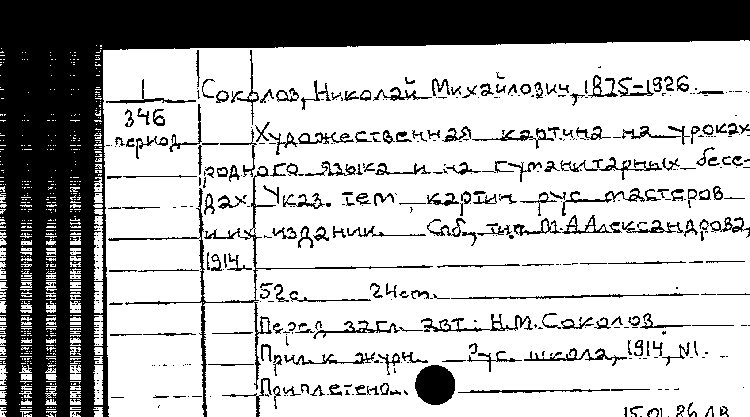 1 Соколов, Николай Михайлович, 1875-1926.
346
период. Художественная картина на уроках
родного языка и на гуманитарных бесе-
дах. Указ. тем, картин рус. мастеров
и их издании. Спб., тип. М.А.Александрова,
1914.
52 с. 24 см.
Перед загл. авт.: Н.М. Соколов.
Прил. к журн. Рус. школа, 1914, №1.
Приплетено.
15.01.86 ЛВ